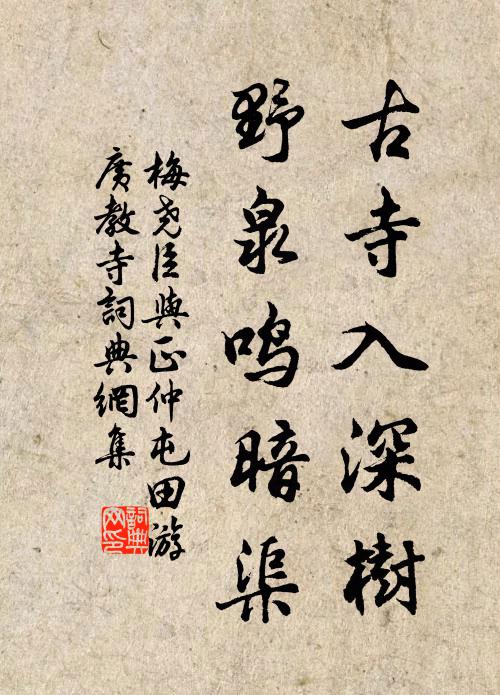 古寺入深樹
野泉鸣暗渠
梅尧臣與正仲屯田游
廣教寺詞典網集
詞典网印